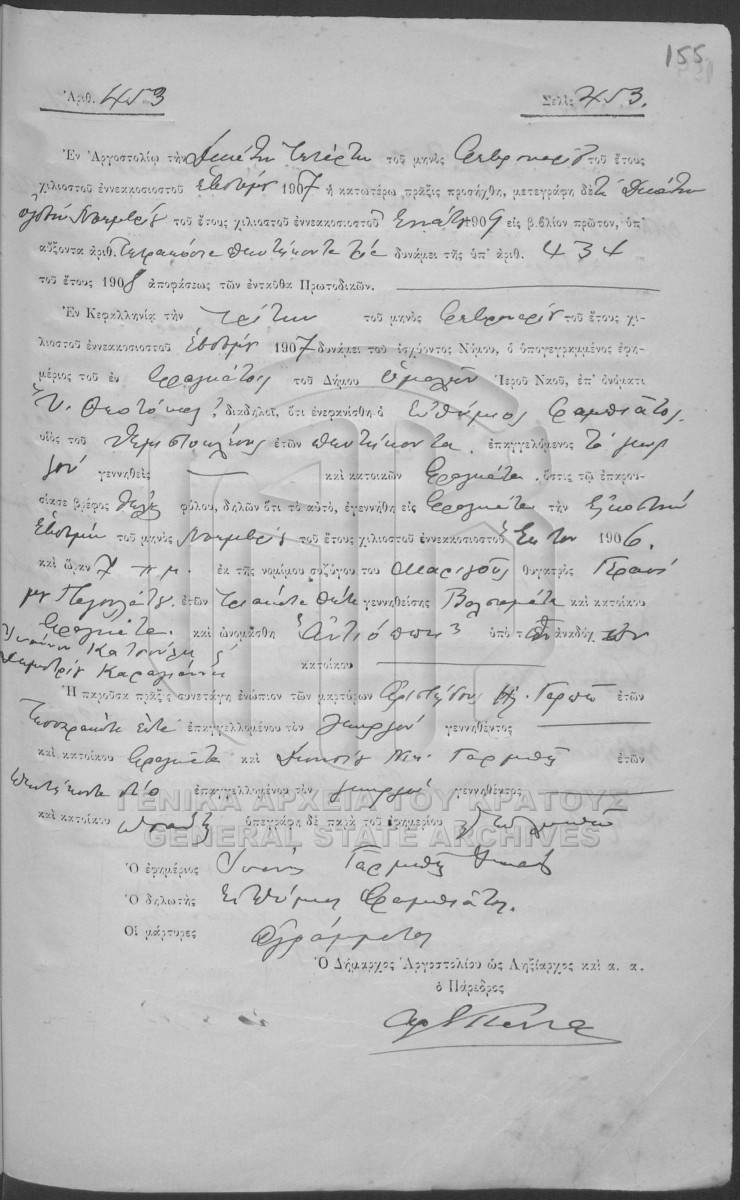 155
Ἀριθ. 453
Σελὶς 453.
Ἐν Ἀργοστολίῳ τὴν δεκάτην τετάρτην τοῦ μηνὸς Φεβρουαρίου τοῦ ἔτους
χιλιοστοῦ ἐννεακοσιοστοῦ ἑβδόμου 1907 ἡ κατωτέρω πρᾶξις προσήχθη, μετεγράφη δὲ τὴν δεκάτην
ὀγδόην Νοεμβρίου τοῦ ἔτους χιλιοστοῦ ἐννεακοσιοστοῦ ἐνάτου 1909 εἰς βιβλίον πρῶτον, ὑπ'
αὔξοντα ἀριθ. τετρακόσια πεντήκοντα τρία δυνάμει τῆς ὑπ' ἀριθ. 434
τοῦ ἔτους 1908 ἀποφάσεως τῶν ἐνταῦθα Πρωτοδικῶν.
Ἐν Κεφαλληνίᾳ τὴν τρίτην τοῦ μηνὸς Φεβρουαρίου τοῦ ἔτους χι-
λιοστοῦ ἐννεακοσιοστοῦ ἑβδόμου 1907 δυνάμει τοῦ ἰσχύοντος Νόμου, ὁ ὑπογεγραμμένος ἐφη-
μέριος τοῦ ἐν Φραγκάτοις τοῦ Δήμου Ὁμαλῶν Ἱεροῦ Ναοῦ, ἐπ' ὀνόματι
Ὑ. Θεοτόκος διαδηλοῖ, ὅτι ἐνεφανίσθη ὁ Εὐθύμιος Φαμπιάτος
υἱὸς τοῦ Θεμιστοκλέους ἐτῶν πεντήκοντα ἐπαγγελόμενος τὸ γεωρ
γοῦ γεννηθεὶς καὶ κατοικῶν Φραγκάτα, ὅστις τῷ ἐπαρου-
σίασε βρέφος θήλυ φύλου, δηλῶν ὅτι τὸ αὐτό, ἐγεννήθη εἰς Φραγκάτα τὴν εἰκοστὴν
ἑβδόμην τοῦ μηνὸς Νοεμβρίου τοῦ ἔτους χιλιοστοῦ ἐννεακοσιοστοῦ ἕκτου 1906.
καὶ ὥραν 7 π.μ. ἐκ τῆς νομίμου συζύγου του Μαριγοῦς θυγατρὸς Γερασί
μου ἐτῶν τριάκοντα πέντε γεννηθείσης Βαλσαμάτα καὶ κατοίκου
Φραγκάτα. καὶ ὠνομάσθη Ἀντιόπη ὑπὸ τῶν ἀναδόχων
Ἰωάννου Κατσούλη
Δημητρίου Καραγιάννη κατοίκου
Ἡ παροῦσα πρᾶξις συνετάγη ἐνώπιον τῶν μαρτύρων Ἀριστείδου ἐτῶν
τεσσαράκοντα ἑπτὰ ἐπαγγελλομένου τὸν γεωργοῦ γεννηθέντος
καὶ κατοίκου Φραγκάτα καὶ Διονυσίου Νικ. Γαρμπῆ ἐτῶν
πεντήκοντα δύο ἐπαγγελλομένου τὸν γεωργοῦ γεννηθέντος
καὶ κατοίκου ὑπεγράφη δὲ παρὰ τοῦ ἐφημερίου
ΓΕΝΙΚΑ ΑΡΧΕΙΑ ΤΟΥ ΚΡΑΤΟΥΣ
GENERAL STATE ARCHIVES
Ὁ ἐφημέριος Ἰωάν. Γαρμπῆς
Ὁ δηλωτὴς Εὐθύμιος Φαμπιάτος.
Οἱ μάρτυρες ἀγράμματοι
Ὁ Δήμαρχος Ἀργοστολίου ὡς Ληξίαρχος καὶ α. α.
ὁ Πάρεδρος